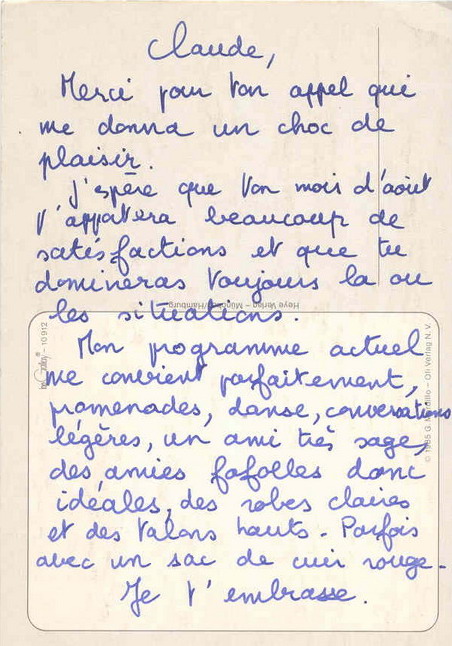 Claude,
Merci pour ton appel qui
me donna un choc de
plaisir.
J'espère que ton mois d'août
t'appatera beaucoup de
satésfactions et que tu
domineras toujours la ou
les situations.
Heye Verlag – München/Hamburg
Mon programme actuel
me convient parfaitement,
promenades, danse, conversations
légères, un ami très sage,
des amies fofolles donc
idéales, des robes claires
et des talons hauts. Parfois
avec un sac de cuir rouge.
Je t'embrasse.
10 912
© 1985 G. Mordillo – Oli Verlag N.V.